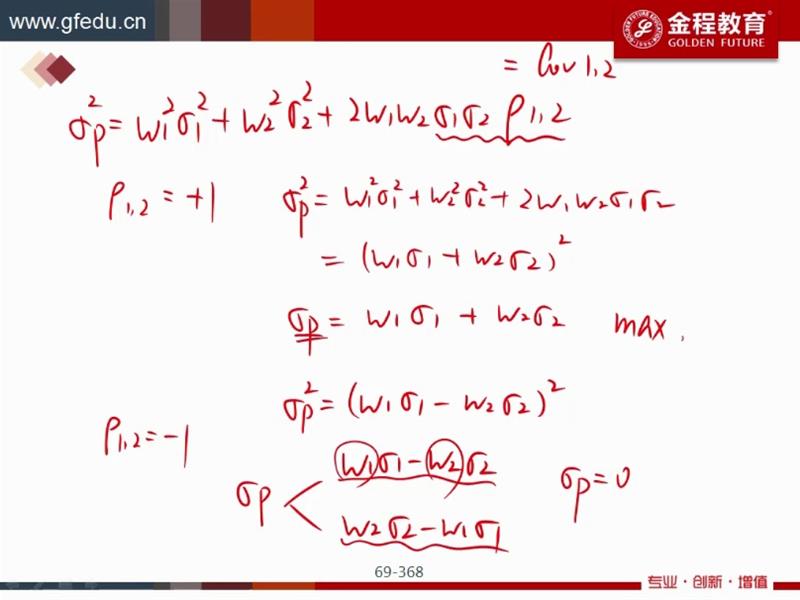 www.gfedu.cn
金程教育
GOLDEN FUTURE
= Cov 1,2
σp² = w1²σ1² + w2²σ2² + 2w1w2σ1σ2 ρ1,2
ρ1,2 = +1 σp² = w1²σ1² + w2²σ2² + 2w1w2σ1σ2
= (w1σ1 + w2σ2)²
σp = w1σ1 + w2σ2 max.
σp² = (w1σ1 - w2σ2)²
ρ1,2 = -1
w1σ1 - w2σ2
σp < σp = 0
w2σ2 - w1σ1
69-368
专业·创新·增值